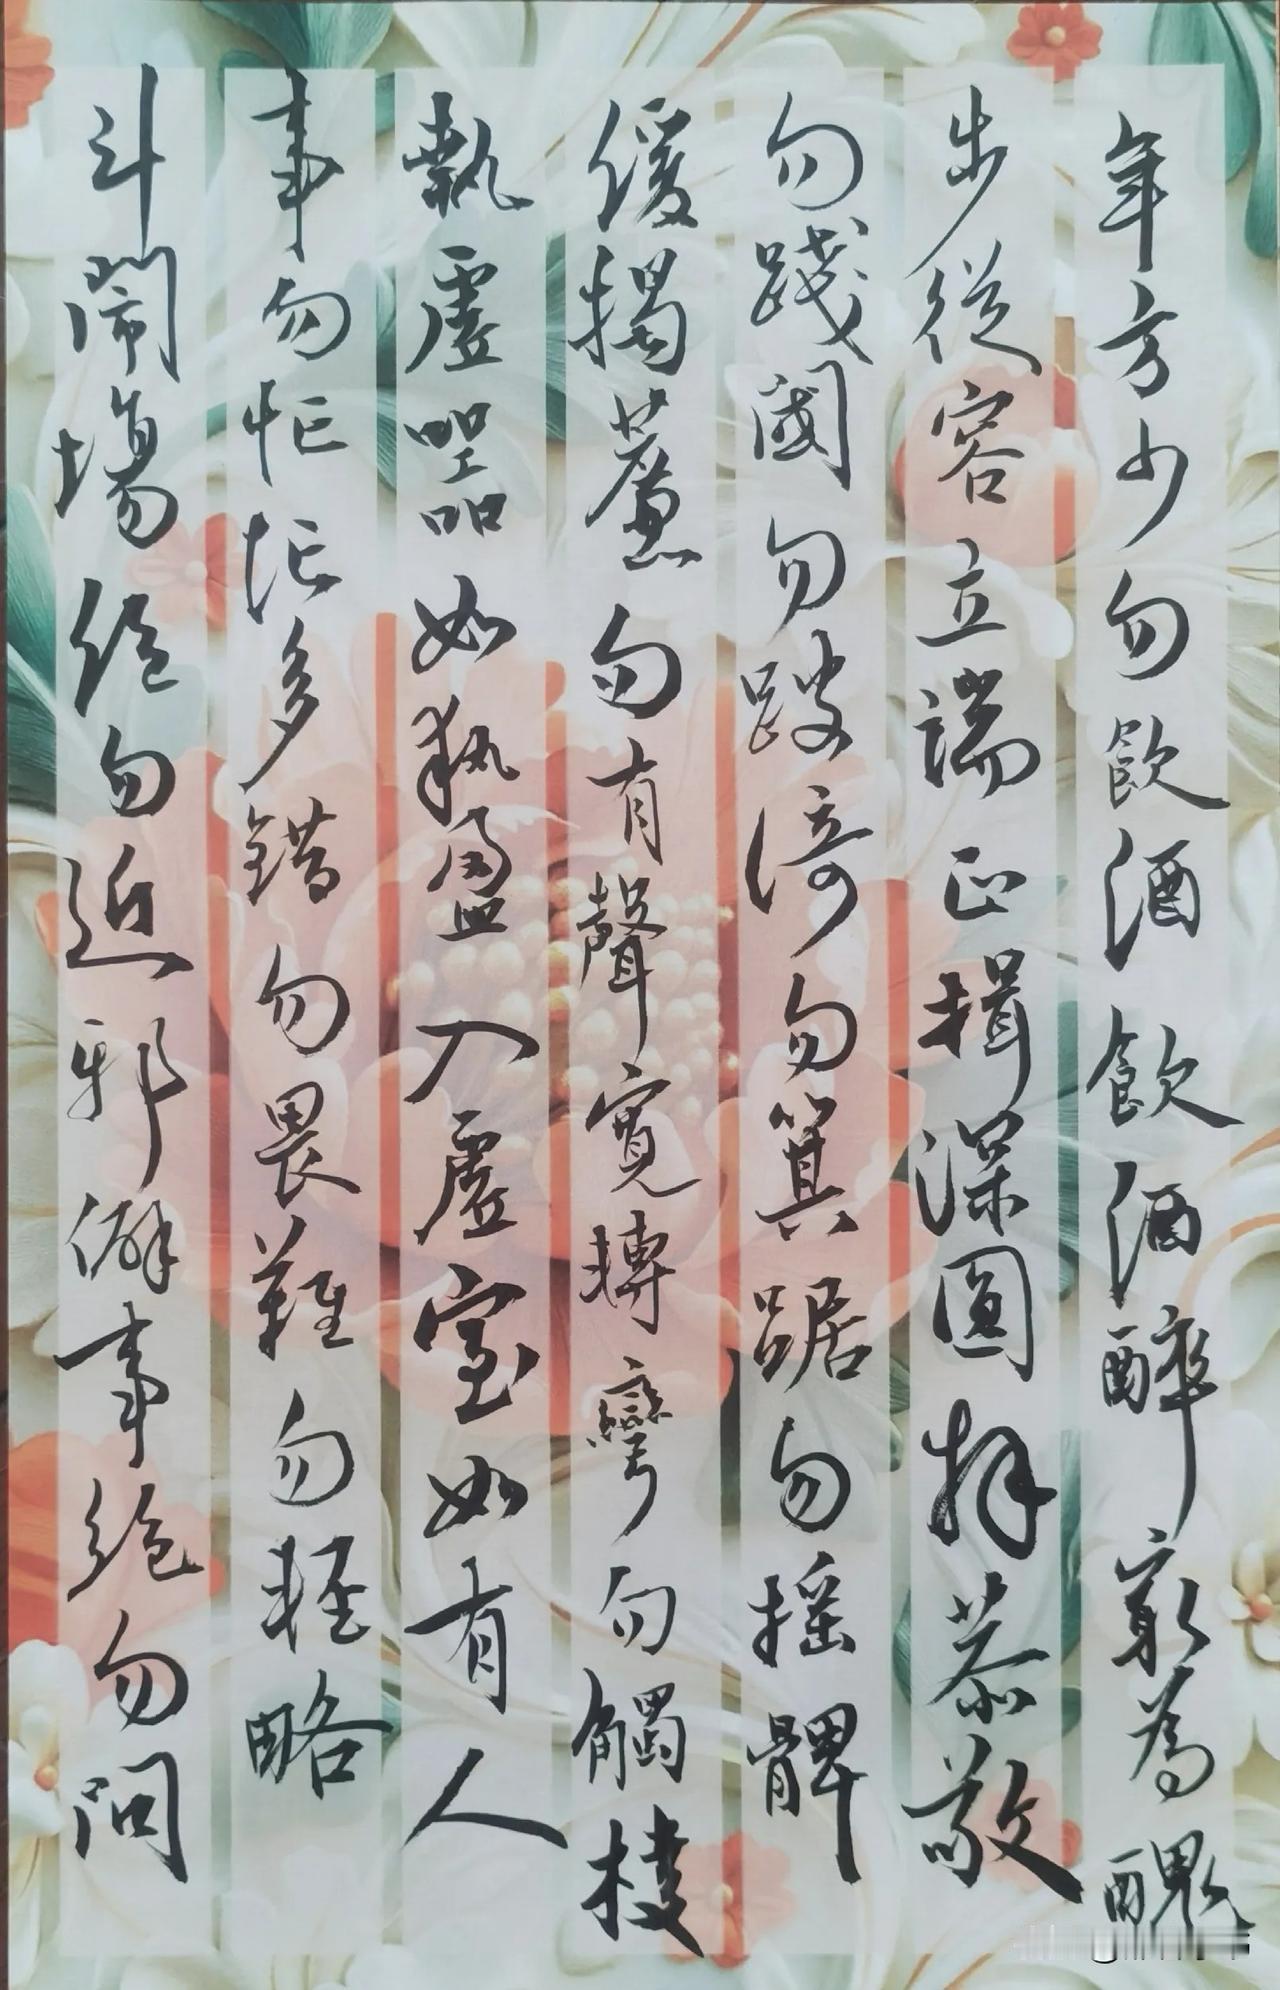 年方少勿飲酒飲酒醉冣為醜
步從容立端正揖深圓拜恭敬
勿踐閾勿跛倚勿箕踞勿搖髀
緩揭簾勿有聲寬轉彎勿觸棱
執虛器如執盈入虛室如有人
事勿忙忙多錯勿畏難勿輕略
斗鬧場絕勿近邪僻事絕勿問